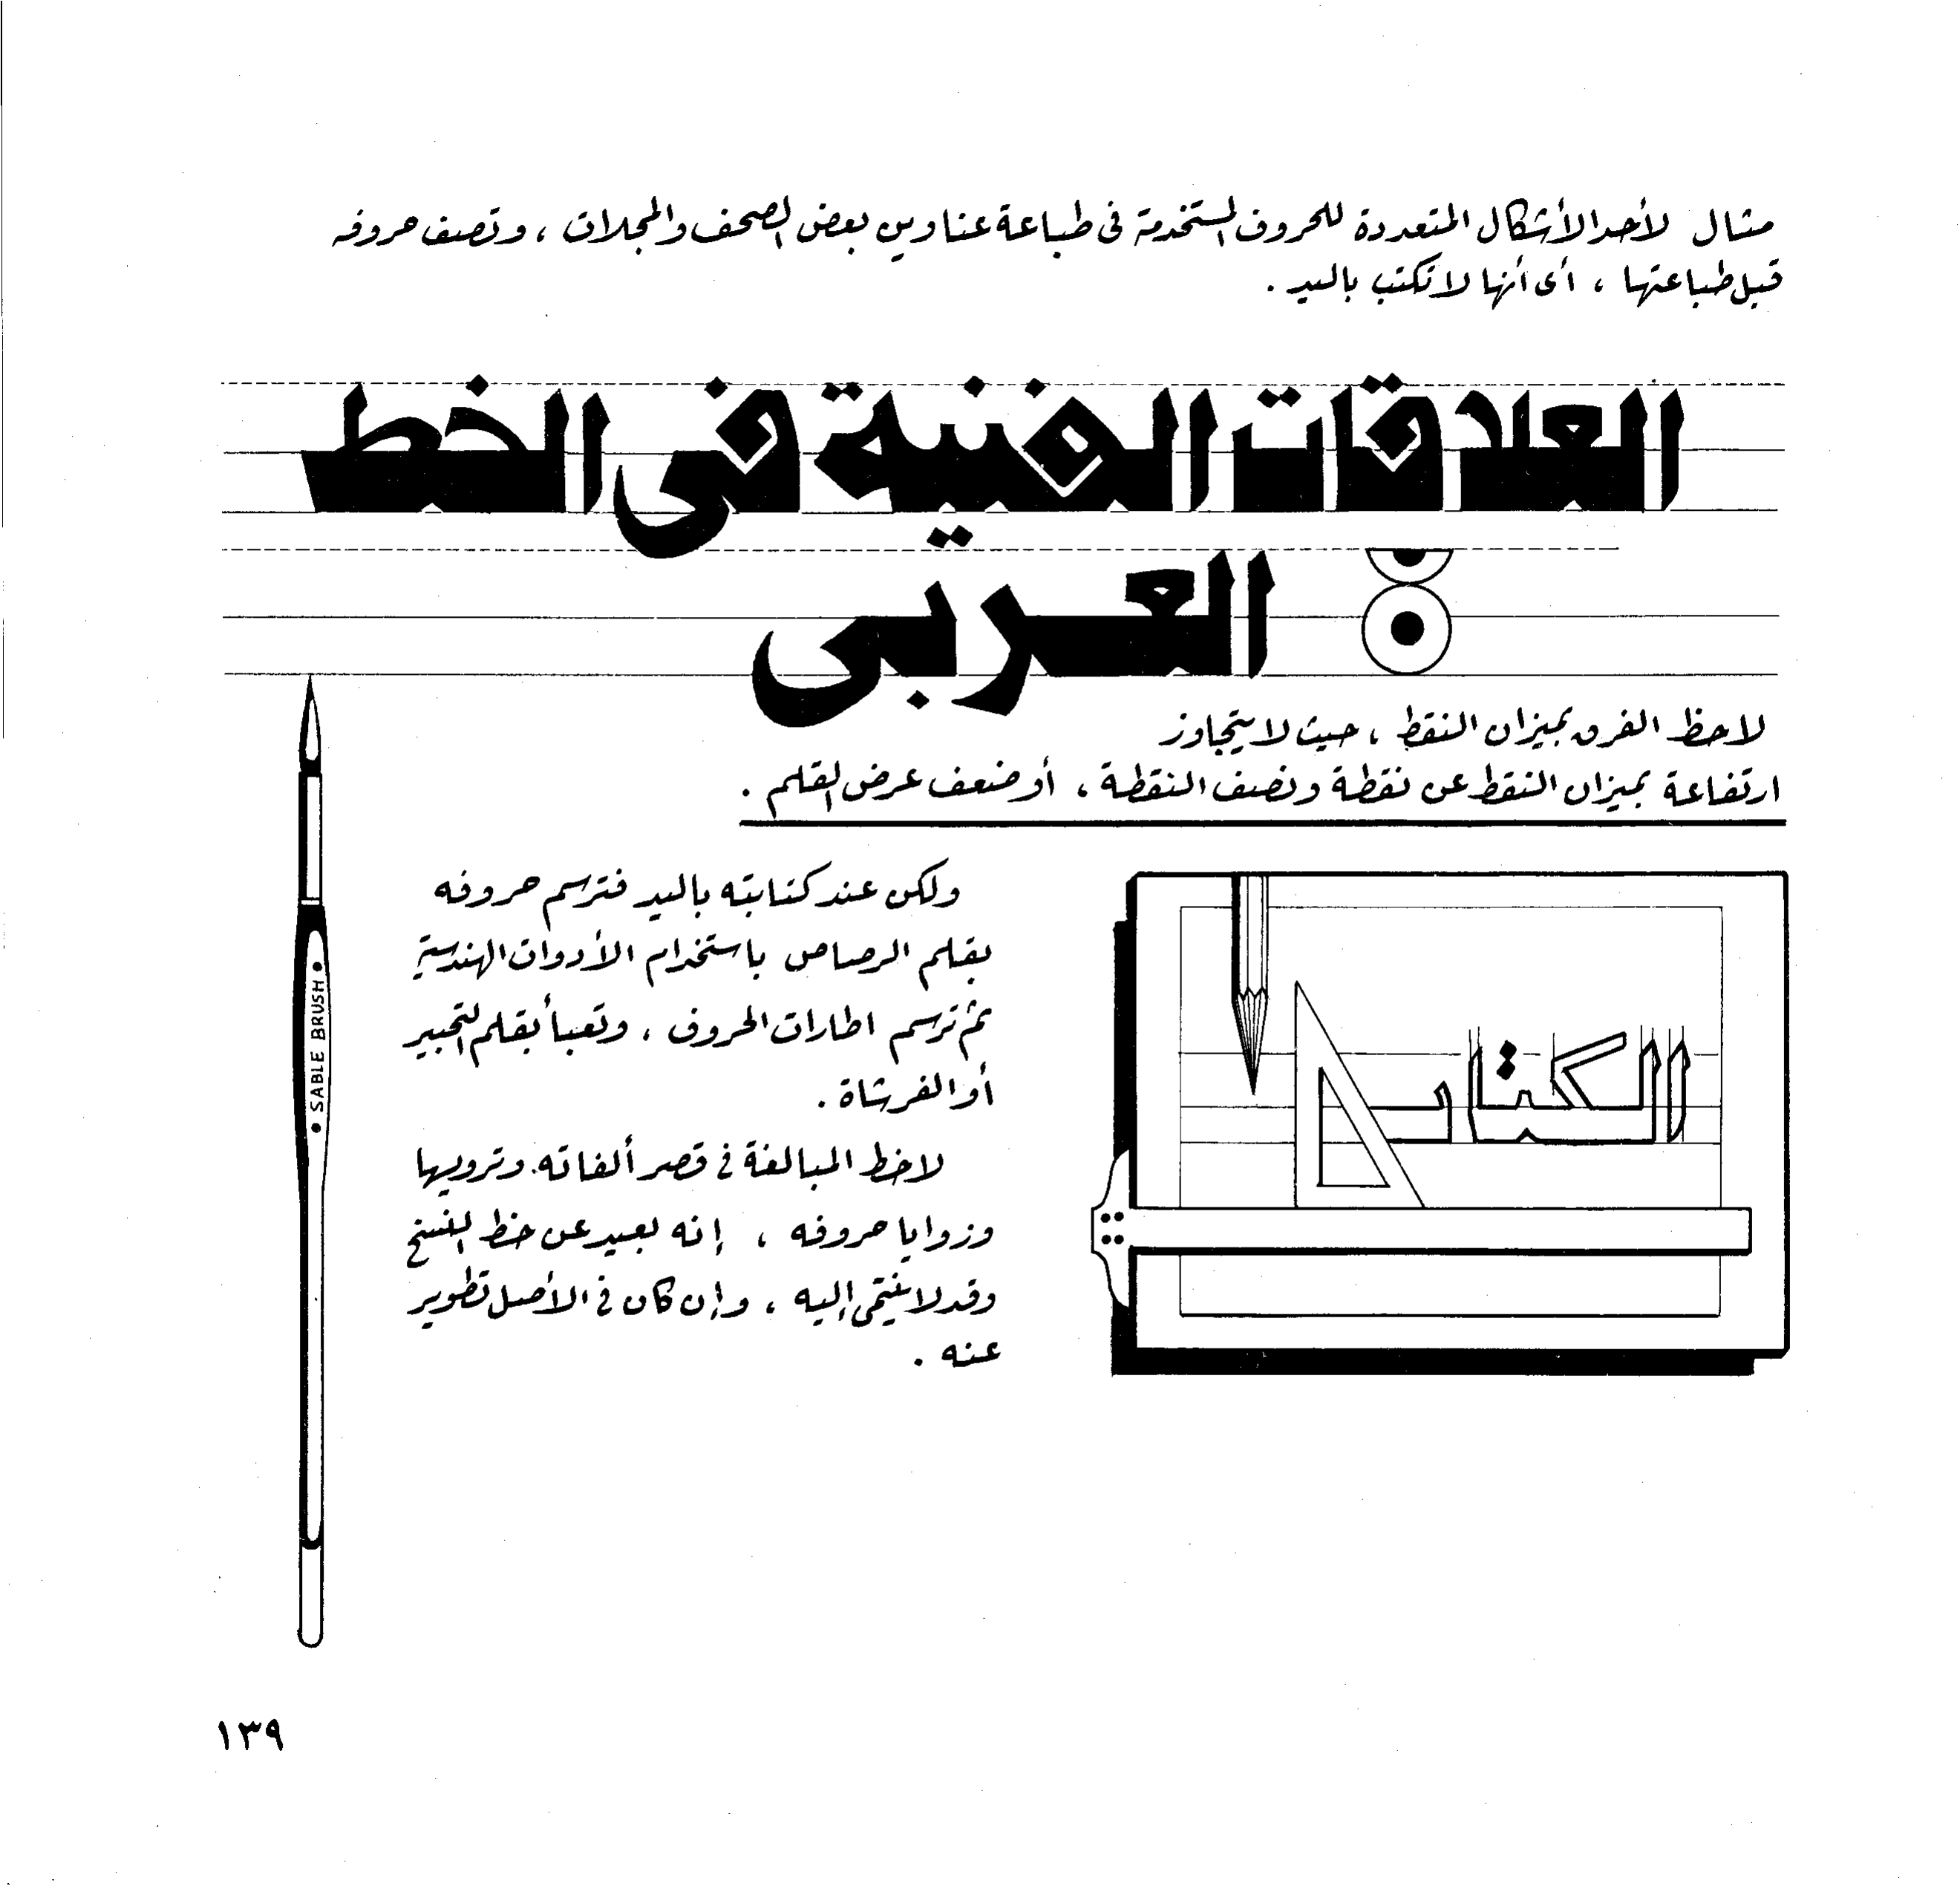 مثال لأحد الأشكال المتعددة للحروف المستخدمة فى طباعة عناوين بعض الصحف والمجلات ، وتصف حروفه
قبل طباعتها ، أى أنها لا تكتب باليد .
العلاقات الفنية فى الخط
العربى
لاحظ الفرق بميزان النقط ، حيث لا يتجاوز
ارتفاعة بميزان النقط عن نقطة ونصف النقطة ، أو ضعف عرض القلم .
ولكن عند كتابته باليد فترسم حروفه
بقلم الرصاص باستخدام الأدوات الهندسية
ثم ترسم اطارات الحروف ، وتعبأ بقلم التحبير
أو الفرشاة .
لاحظ المبالغة فى قصر ألفاته . وترويسها
وزوايا حروفه ، إنه بعيد عن خط النسخ
وقد لا ينتمى إليه ، وإن كان فى الأصل تطوير
عنه .
الكتاب
SABLE BRUSH
١٣٩